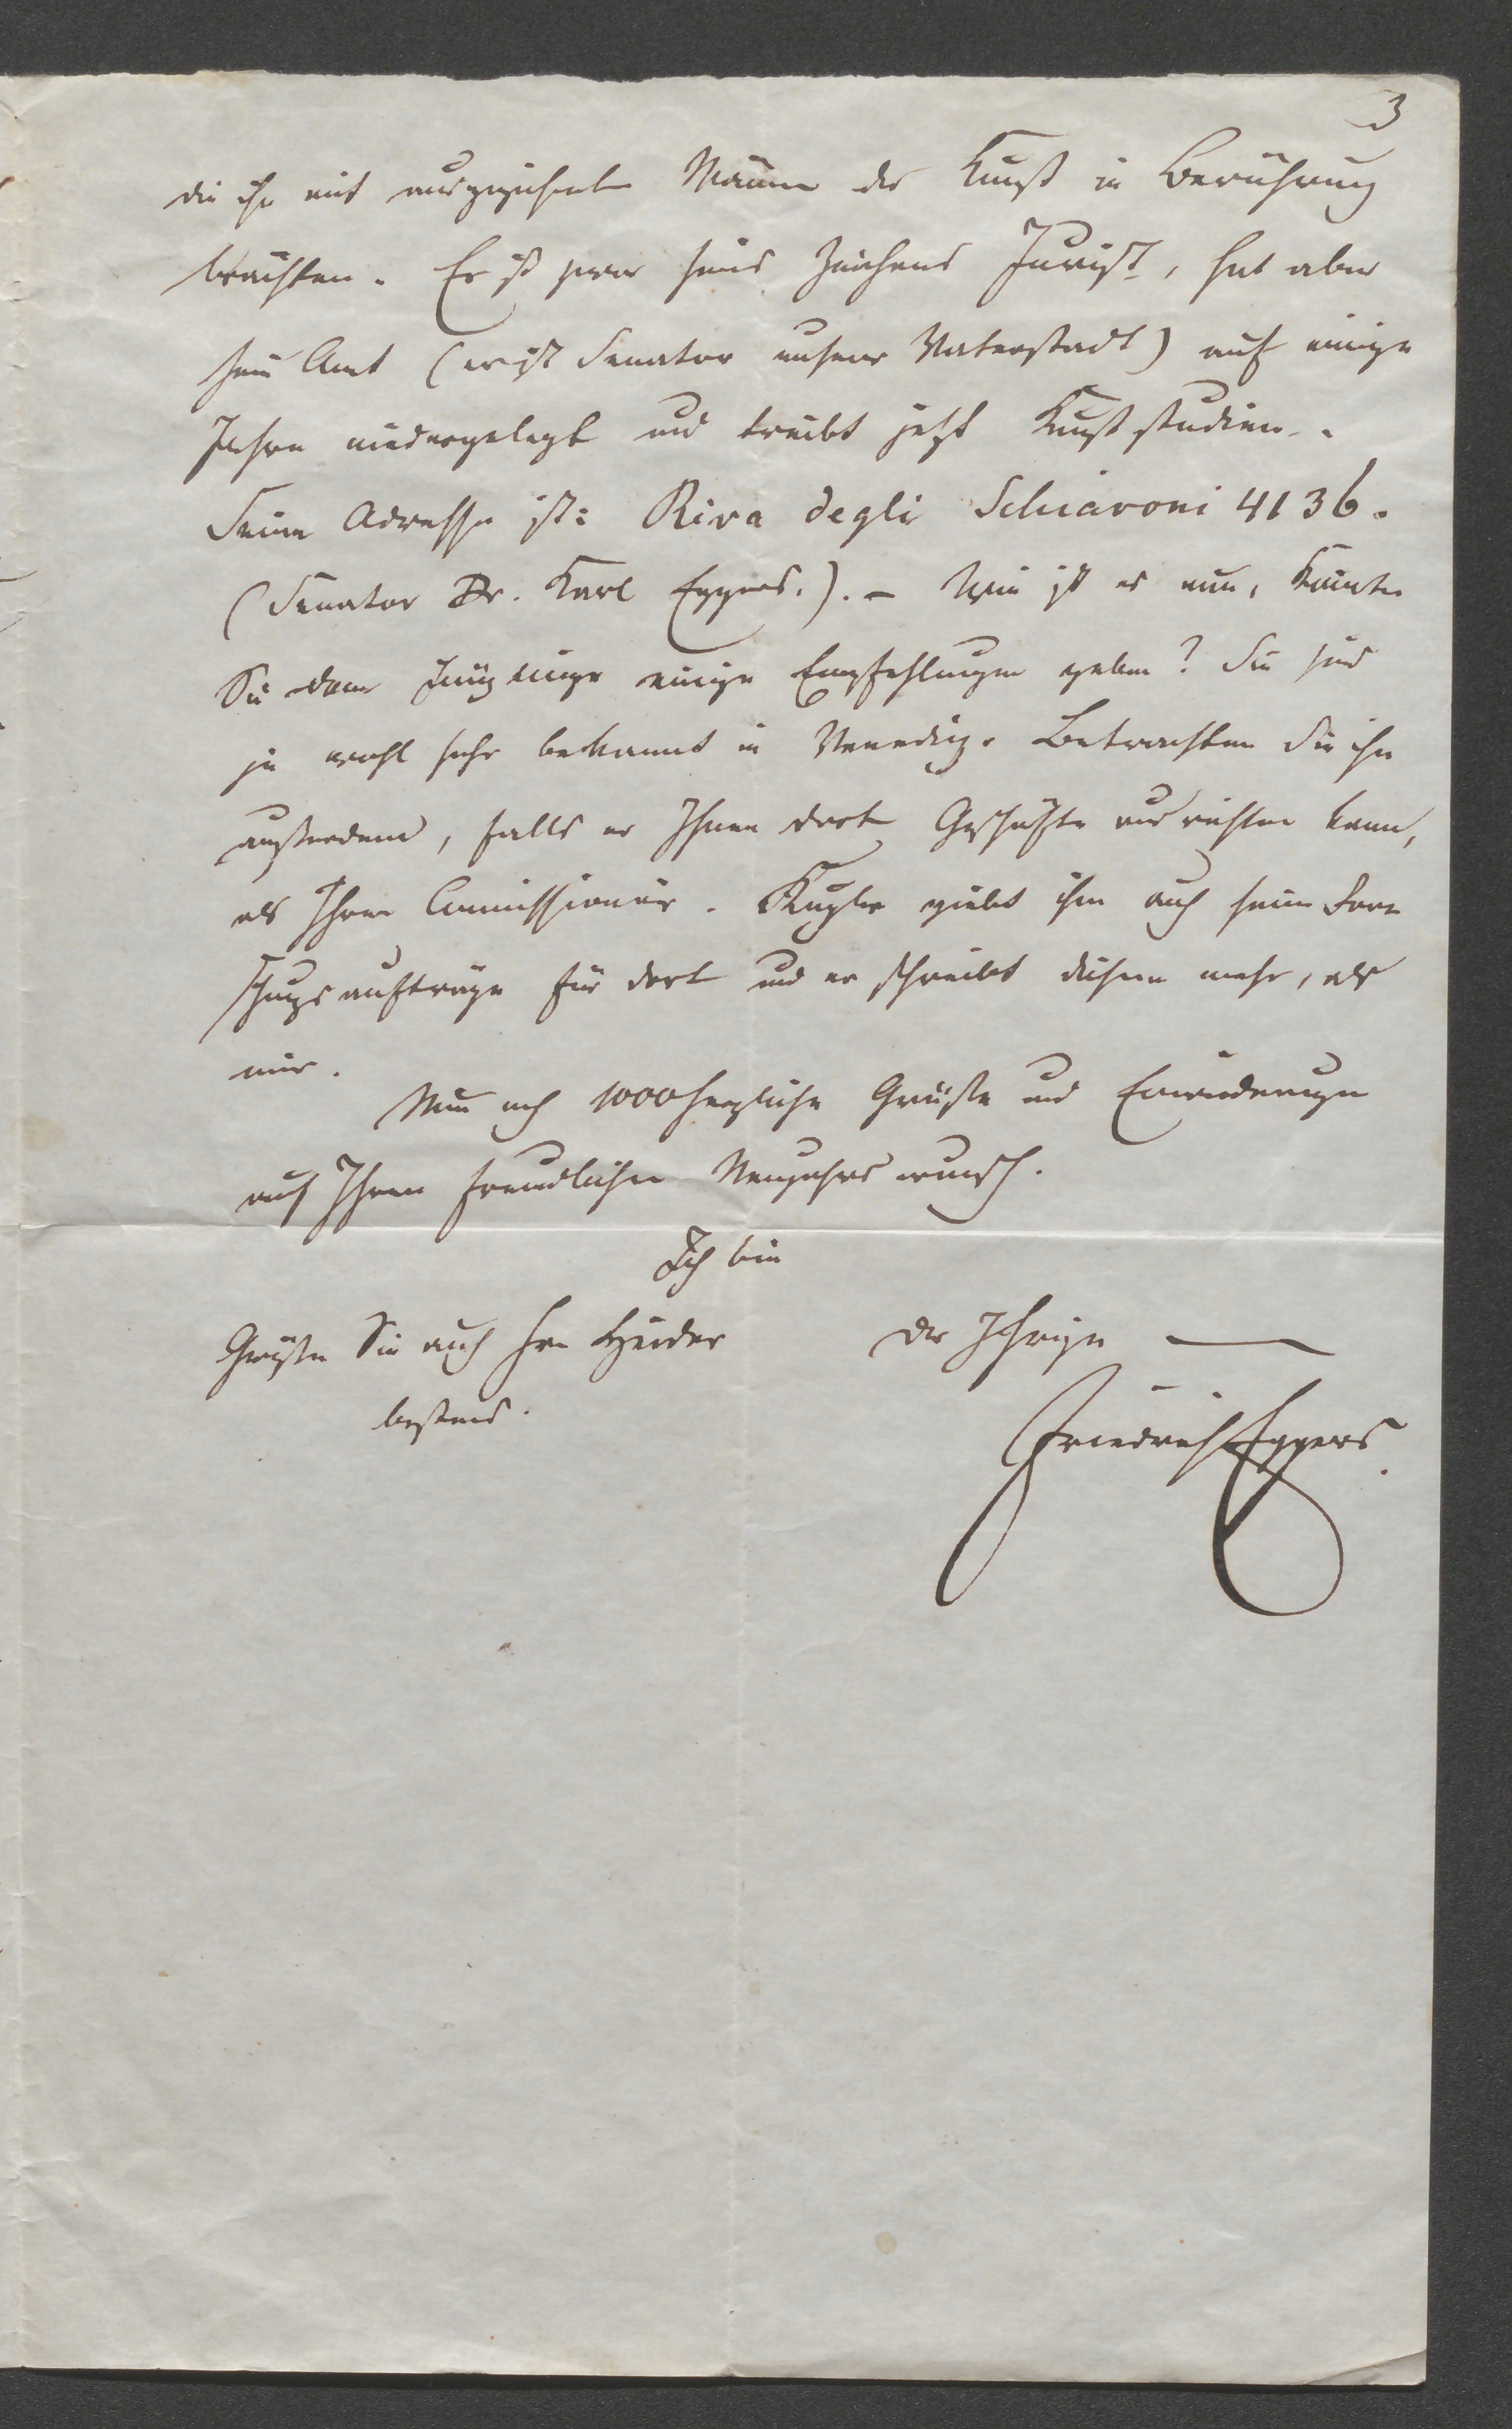 3
die ihn mit ausgezeichneten Männern der Kunst in Berührung
brächten. Er ist zwar seines Zeichens Jurist, hat aber
sein Amt (er ist Senator unserer Vaterstadt) auf einige
Jahre niedergelegt und treibt jetzt Kunststudien.
Seine Adresse ist: Riva degli Schiavoni 4136.
(Senator Dr. Karl Eggers.). – Wie ist es nun, könnten
Sie dem einige Empfehlungen geben? Sie sind
ja wohl sehr bekannt in Venedig. Betrachten Sie ihn
außerdem, falls er Ihnen dort Geschäfte ausrichten kann,
als Ihren Commissionär. Kugler giebt ihm auch seine For=
schungsaufträge für dort und er schreibt diesem mehr, als
mir.
Nun noch 1000 herzliche Grüße und Erwiderungen
auf Ihren freundlichen Neujahrswunsch.
Ich bin
der Ihrige —
Grüßen Sie auch Hrn Heider
bestens.
Friedrich Eggers.